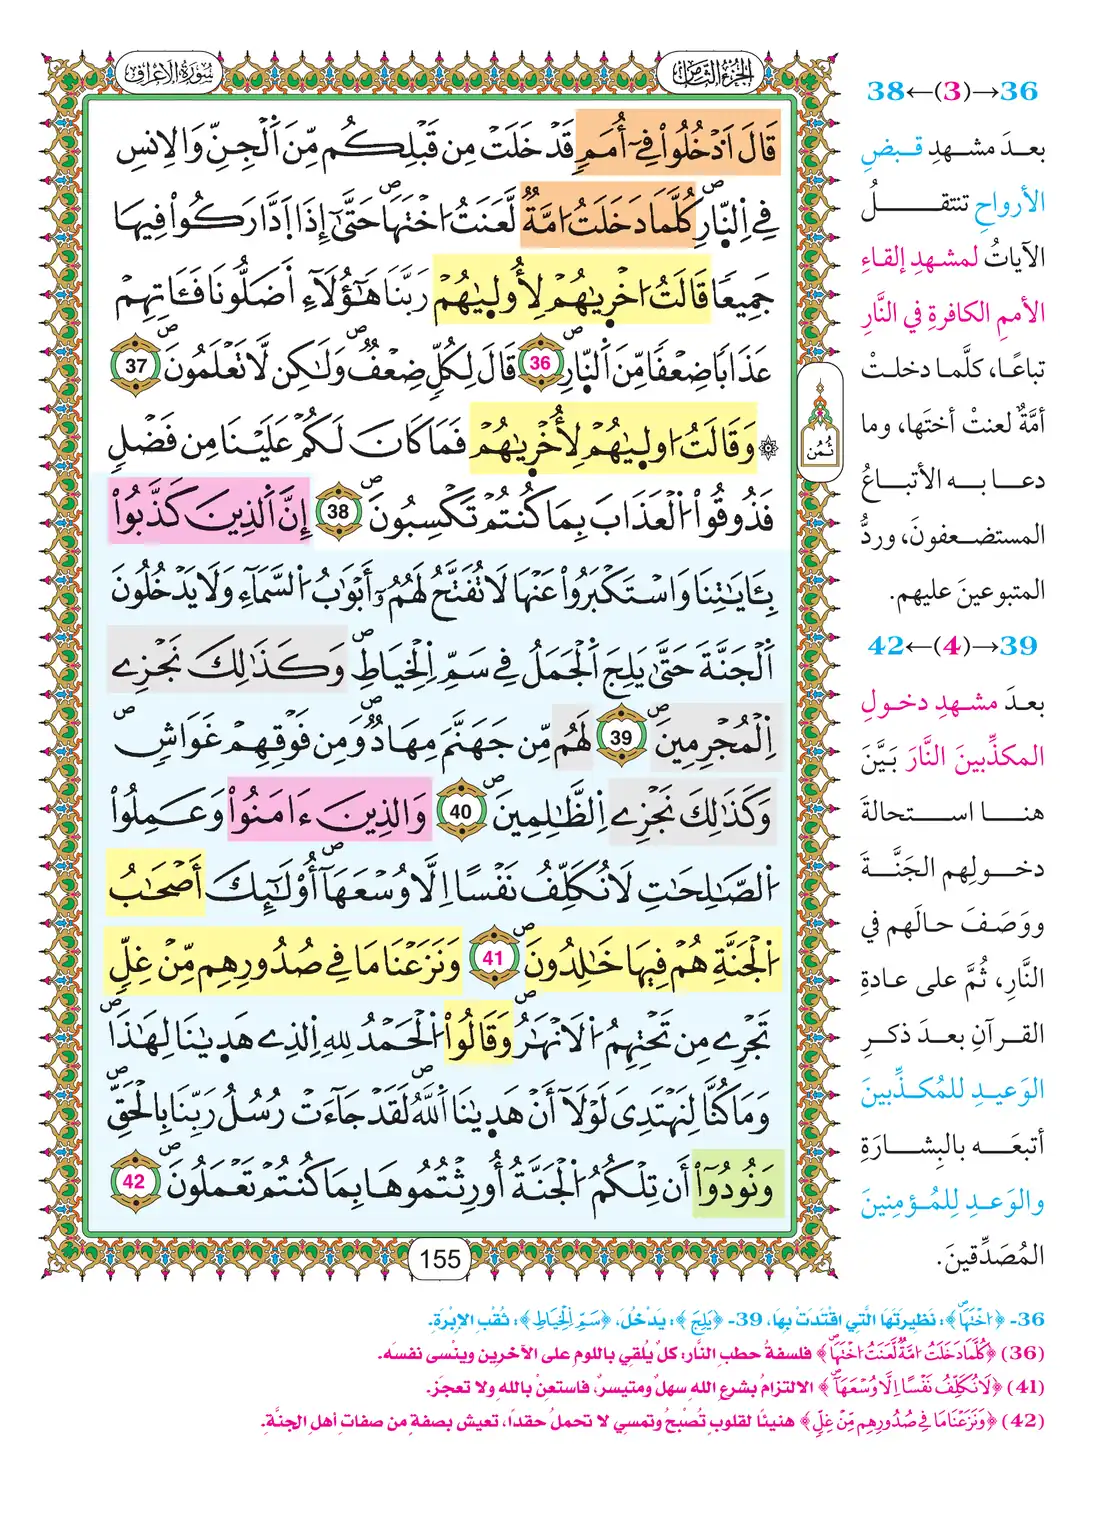 الجزء الثامن
سورة الاعراف
قَالَ اَدْخُلُواْ فِےٓ أُمَمٖ قَدْ خَلَتْ مِن قَبْلِكُم مِّنَ اَلْجِنِّ وَالِانسِ
فِے اِلنّ۪ارِۖ كُلَّمَا دَخَلَتُ امَّةٞ لَّعَنَتُ اخْتَهَاۖ حَتَّىٰٓ إِذَا اَدَّارَكُواْ فِيهَا
جَمِيعاٗ قَالَتُ اخْر۪يٰهُمْ لِأُول۪يٰهُمْ رَبَّنَا هَٰٓؤُلَآءِ اَضَلُّونَا فَـَٔاتِهِمْ
عَذَاباٗ ضِعْفاٗ مِّنَ اَلنّ۪ارِۖ 36 قَالَ لِكُلّٖ ضِعْفٞۖ وَلَٰكِن لَّا تَعْلَمُونَۖ 37
۞ وَقَالَتُ اول۪يٰهُمْ لِأُخْر۪يٰهُمْ فَمَا كَانَ لَكُمْ عَلَيْنَا مِن فَضْلٖ
فَذُوقُواْ اُلْعَذَابَ بِمَا كُنتُمْ تَكْسِبُونَۖ 38 إِنَّ اَلذِينَ كَذَّبُواْ
بِـَٔايَٰتِنَا وَاسْتَكْبَرُواْ عَنْهَا لَا تُفَتَّحُ لَهُمُۥٓ أَبْوَٰبُ اُلسَّمَآءِ وَلَا يَدْخُلُونَ
اَلْجَنَّةَ حَتَّىٰ يَلِجَ اَلْجَمَلُ فِے سَمِّ اِلْخِيَاطِۖ وَكَذَٰلِكَ نَجْزِے
اِلْمُجْرِمِينَۖ 39 لَهُم مِّن جَهَنَّمَ مِهَادٞۖ وَمِن فَوْقِهِمْ غَوَاشٖۖ
وَكَذَٰلِكَ نَجْزِے اِلظَّٰلِمِينَۖ 40 وَالذِينَ ءَامَنُواْ وَعَمِلُواْ
اُلصَّٰلِحَٰتِ لَا نُكَلِّفُ نَفْساً اِلَّا وُسْعَهَآۖ أُوْلَٰٓئِكَ أَصْحَٰبُ
اُلْجَنَّةِ هُمْ فِيهَا خَٰلِدُونَۖ 41 وَنَزَعْنَا مَا فِے صُدُورِهِم مِّنْ غِلّٖ
تَجْرِے مِن تَحْتِهِمُ اُلَانْهَٰرُۖ وَقَالُواْ اُلْحَمْدُ لِلهِ اِلذِے هَد۪يٰنَا لِهَٰذَاۖ
وَمَا كُنَّا لِنَهْتَدِيَ لَوْلَآ أَنْ هَد۪يٰنَا اَللَّهُۖ لَقَدْ جَآءَتْ رُسُلُ رَبِّنَا بِالْحَقِّۖ
وَنُودُوٓاْ أَن تِلْكُمُ اُلْجَنَّةُ أُورِثْتُمُوهَا بِمَا كُنتُمْ تَعْمَلُونَۖ 42
ثُمُن
155
36→(3)←38
بعدَ مشهدِ قبضِ
الأرواحِ تنتقلُ
الآياتُ لمشهدِ إلقاءِ
الأممِ الكافرةِ في النَّارِ
تباعًا، كلَّما دخلتْ
أمَّةٌ لعنتْ أختَها، وما
دعا به الأتباعُ
المستضعفونَ، وردُّ
المتبوعينَ عليهم.
39→(4)←42
بعدَ مشهدِ دخولِ
المكذِّبينَ النَّارَ بَيَّنَ
هنا استحالةَ
دخولِهم الجَنَّةَ
ووَصَفَ حالَهم في
النَّارِ، ثُمَّ على عادةِ
القرآنِ بعدَ ذكرِ
الوَعيدِ للمُكذِّبينَ
أتبعَه بالبِشارَةِ
والوَعدِ لِلمُؤمِنينَ
المُصَدِّقينَ.
36- ﴿اخْتَهَاۖ﴾: نَظِيرَتَهَا الَّتِي اقْتَدَتْ بِهَا، 39- ﴿يَلِجَ﴾: يَدْخُلَ، ﴿سَمِّ اِلْخِيَاطِ﴾: ثُقْبِ الإِبْرَةِ.
(36) ﴿كُلَّمَا دَخَلَتُ امَّةٞ لَّعَنَتُ اخْتَهَاۖ﴾ فلسفةُ حطبِ النَّارِ: كلٌّ يُلقي باللومِ على الآخرينَ وينْسى نفسَه.
(41) ﴿لَا نُكَلِّفُ نَفْساً اِلَّا وُسْعَهَآۖ﴾ الالتزامُ بشرعِ اللهِ سهلٌ ومتيسرٌ، فاستعِنْ باللهِ ولا تعجَزْ.
(42) ﴿وَنَزَعْنَا مَا فِے صُدُورِهِم مِّنْ غِلّٖ﴾ هنيئًا لقلوبٍ تُصْبحُ وتمسي لا تحملُ حقدًا، تعيش بصفةٍ من صفاتِ أهلِ الجنَّة.